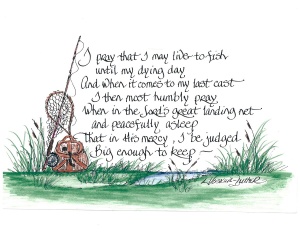 I pray that I may live to fish
until my dying day
And when it comes to my last cast
I then most humbly pray,
When in the Lord's great landing net
and peacefully asleep
That in His mercy, I be judged
Big enough to keep ~